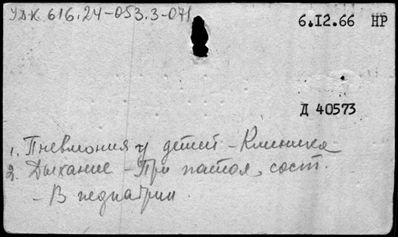 УДК 616.24-053.3-071
6.IX.66 НР
Д 40573
1. Пневмония у детей - Клиника
2. Дыхание - При патол. сост.
- В педиатрии